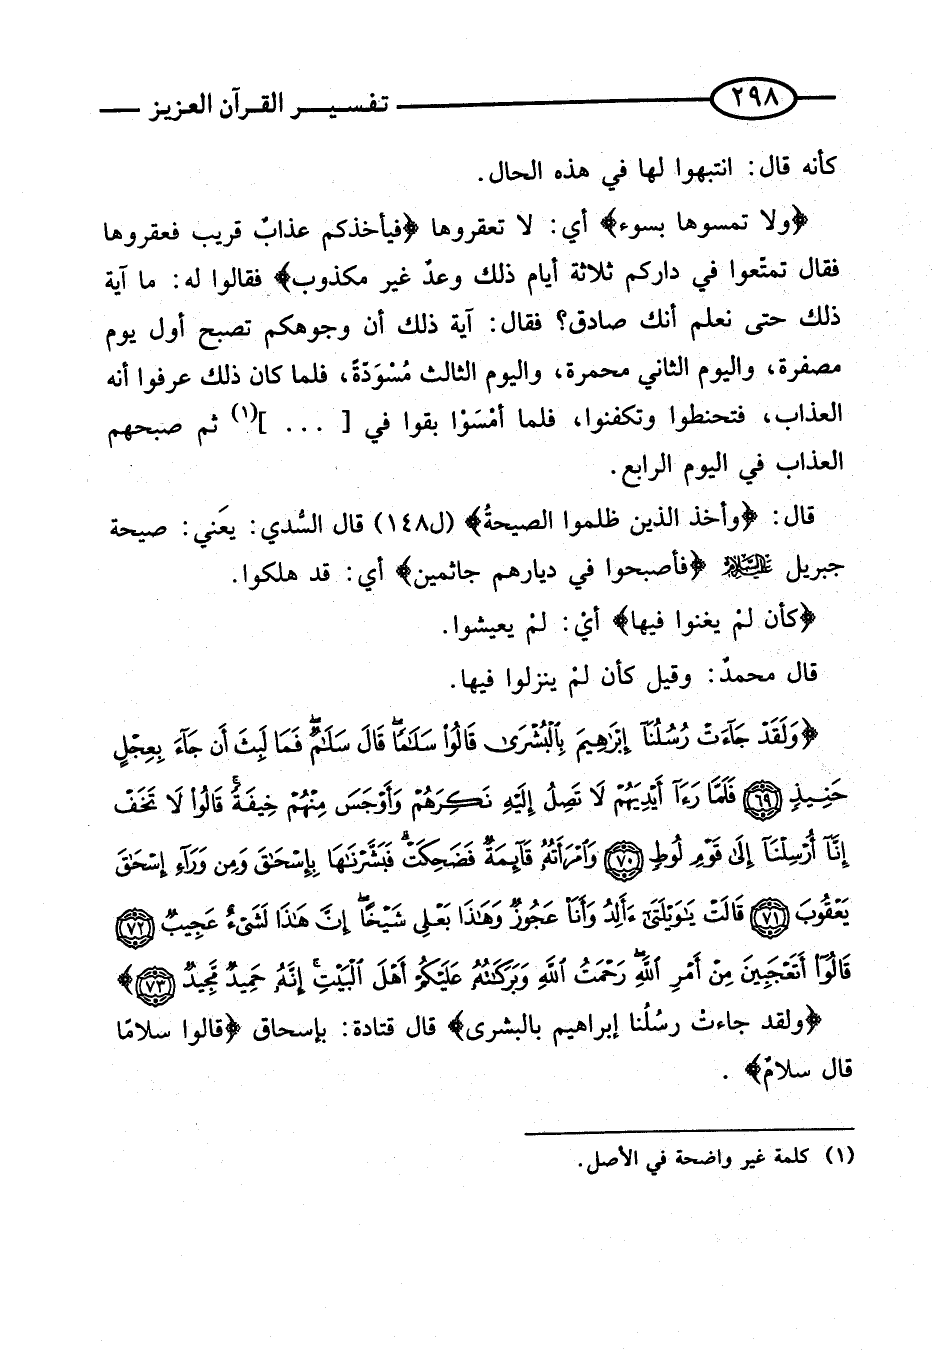 ٢٩٨ تفسير القرآن العزيز
كأنه قال: انتبهوا لها في هذه الحال.
﴿ولا تمسوها بسوء﴾ أي: لا تعقروها ﴿فيأخذكم عذابٌ قريب فعقروها
فقال تمتّعوا في داركم ثلاثة أيام ذلك وعدٌ غير مكذوب﴾ فقالوا له: ما آية
ذلك حتى نعلم أنك صادق؟ فقال: آية ذلك أن وجوهكم تصبح أول يوم
مصفرة، واليوم الثاني محمرة، واليوم الثالث مُسْوَدّةً، فلما كان ذلك عرفوا أنه
العذاب، فتحنطوا وتكفنوا، فلما أمْسَوْا بقوا في [ ... ](١) ثم صبحهم
العذاب في اليوم الرابع.
قال: ﴿وأخذ الذين ظلموا الصيحةُ﴾ (ل١٤٨) قال السُّدي: يعَني: صيحة
جبريل عليه السلام ﴿فأصبحوا في ديارهم جاثمين﴾ أي: قد هلكوا.
﴿كأن لمْ يغنوا فيها﴾ أيْ: لمْ يعيشوا.
قال محمدٌ: وقيل كأن لمْ ينزلوا فيها.
﴿وَلَقَدْ جَآءَتْ رُسُلُنَآ إِبْرَٰهِيمَ بِٱلْبُشْرَىٰ قَالُوا۟ سَلَٰمًا ۖ قَالَ سَلَٰمٌ ۖ فَمَا لَبِثَ أَن جَآءَ بِعِجْلٍ
حَنِيذٍ ٦٩ فَلَمَّا رَءَآ أَيْدِيَهُمْ لَا تَصِلُ إِلَيْهِ نَكِرَهُمْ وَأَوْجَسَ مِنْهُمْ خِيفَةً ۚ قَالُوا۟ لَا تَخَفْ
إِنَّآ أُرْسِلْنَآ إِلَىٰ قَوْمِ لُوطٍ ٧٠ وَٱمْرَأَتُهُۥ قَآئِمَةٌ فَضَحِكَتْ فَبَشَّرْنَٰهَا بِإِسْحَٰقَ وَمِن وَرَآءِ إِسْحَٰقَ
يَعْقُوبَ ٧١ قَالَتْ يَٰوَيْلَتَىٰٓ ءَأَلِدُ وَأَنَا۠ عَجُوزٌ وَهَٰذَا بَعْلِى شَيْخًا ۖ إِنَّ هَٰذَا لَشَىْءٌ عَجِيبٌ ٧٢
قَالُوٓا۟ أَتَعْجَبِينَ مِنْ أَمْرِ ٱللَّهِ ۖ رَحْمَتُ ٱللَّهِ وَبَرَكَٰتُهُۥ عَلَيْكُمْ أَهْلَ ٱلْبَيْتِ ۚ إِنَّهُۥ حَمِيدٌ مَّجِيدٌ ٧٣﴾
﴿ولقد جاءتْ رسُلُنا إبراهيم بالبشرى﴾ قال قتادة: بإسحاق ﴿قالوا سلامًا
قال سلامٌ﴾ .
(١) كلمة غير واضحة في الأصل.